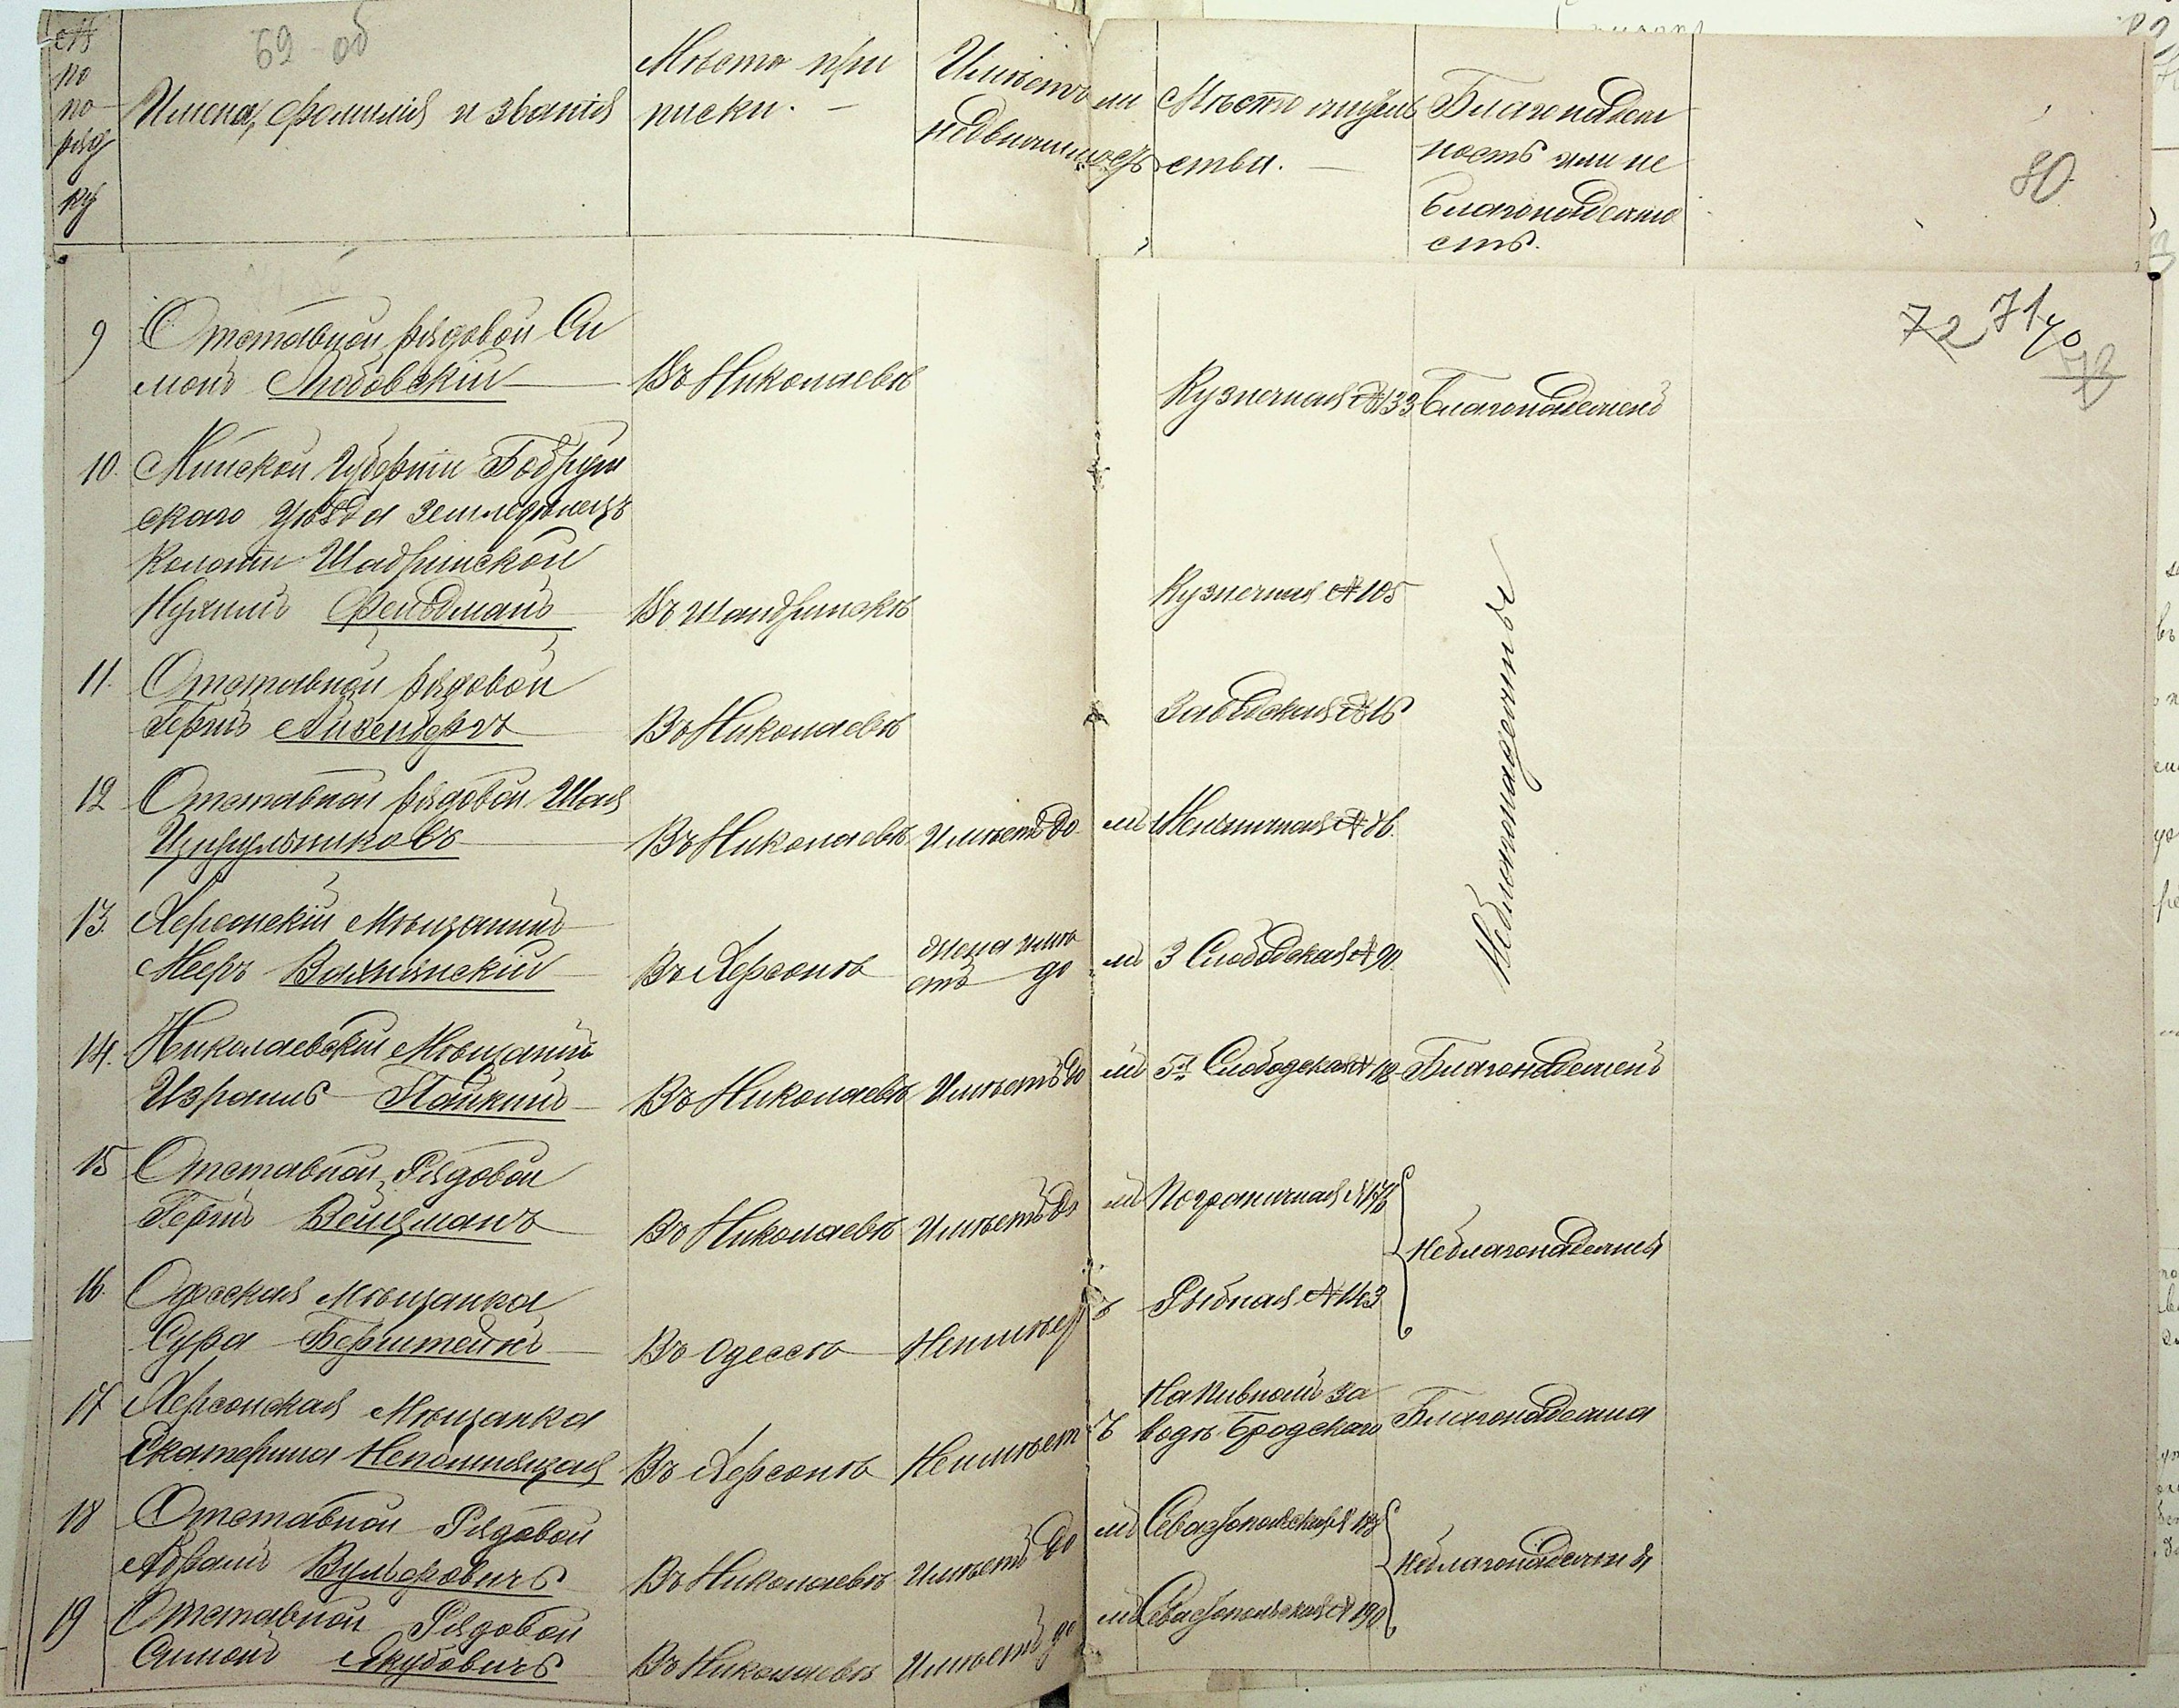 69 об
№
по
по-
ряд
ку
Имена, фамилія и званія
Мѣсто при
писки. —
Имѣетъ ли
недвижимость
Мѣсто житель
ства. —
Благонадеж
ность или не
благонадежно
сть.
80
72 71 70
9
Отставной рядовой Си
монъ Любовскій
Въ Николаевѣ
Кузнечная №133
Благонадеженъ
10. Минской Губерніи Бобруй
скаго уѣзда земледѣлецъ
Колоніи Шадринской
Нухимъ Фельдманъ
Въ Шандринскѣ
Кузнечная № 105
Неблагонадежны
11. Отставной рядовой
Гершъ Айзенбергъ
Въ Николаевѣ
12 Отставной рядовой Шая
Цирульниковъ
Въ Николаевѣ
Имѣетъ домъ
№ 86.
13. Херсонскій Мѣщанинъ
Мееръ
Въ Херсонѣ
жена имѣ
етъ домъ
3 Слободская № 90.
14. Николаевскій Мѣщанинъ
Израиль Пайкинъ
Въ Николаевѣ
Имѣетъ домъ
5я Слободская № 18
Благонадеженъ
15 Отставной Рядовой
Гершъ Вейцманъ
Въ Николаевѣ
Имѣетъ домъ
Пограничная
Неблагонадежны
16. Одесская Мѣщанка
Сура Бернштейнъ
Въ Одессѣ
Неимѣетъ
Рыбная № 143
17 Херсонская Мѣщанка
Екатерина Непомнящая
Въ Херсонѣ
Неимѣетъ
На Пивномъ за
водѣ Бродскаго
Благонадежна
18 Отставной Рядовой
Абрамъ Вульфовичъ
Въ Николаевѣ
Имѣетъ домъ
Севастопольская
Неблагонадежны
19 Отставной Рядовой
Симонъ Якубовичъ
Въ Николаевѣ
Имѣетъ домъ
Севастопольская № 190